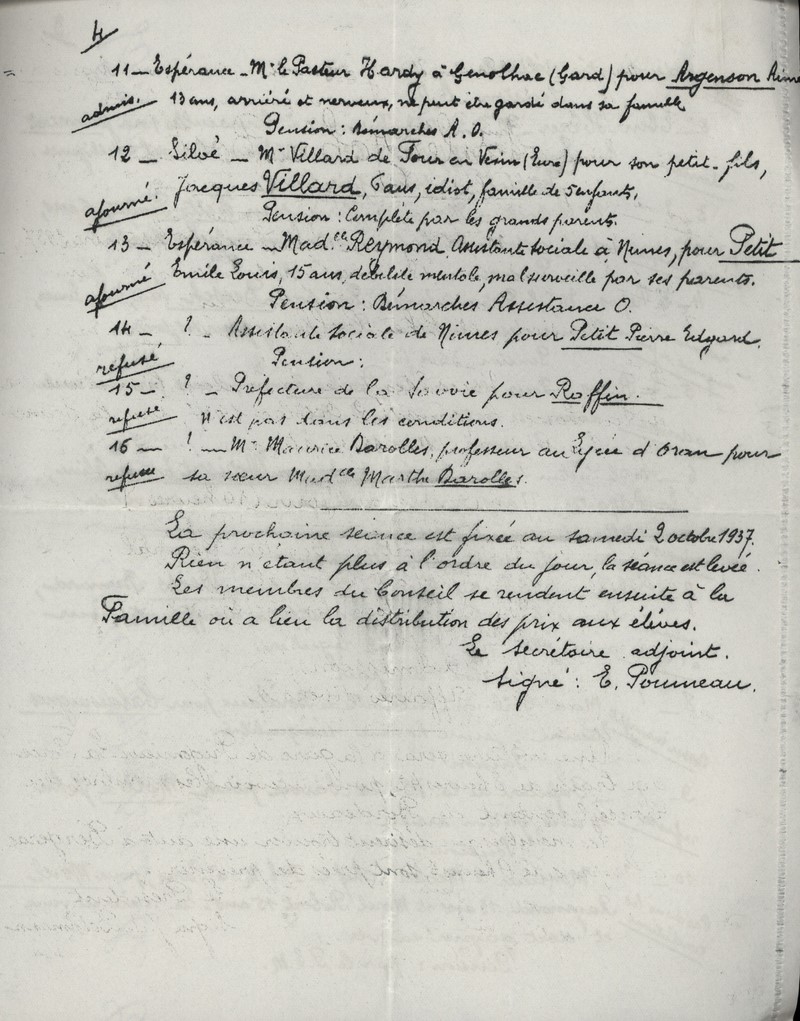 4
11 — Espérance — Mr le Pasteur Hardy à Genolhac (Gard) pour Argenson Aimé
admis. 13 ans, arriéré et nerveux, ne peut être gardé dans sa famille
Pension : Démarches A. O.
12 — Siloé — Mr Villard de Four en Vexin (Eure) pour son petit-fils,
ajourné. Jacques Villard, 6 ans, idiot, famille de 5 enfants,
Pension : Complète par les grands parents.
13 — Espérance — Madelle Reymond Assistante sociale à Nimes, pour Petit
ajourné Emile Louis, 15 ans, débilité mentale, mal surveillé par ses parents.
Pension : Démarches Assistance O.
14 — ? — Assistante sociale de Nimes pour Petit Pierre Edgard.
refusé Pension :
15 — ? — Préfecture de la Savoie pour Roffin.
refusé N'est pas dans les conditions.
16 — ? — Mr Maurice Barolles, professeur au Lycée d'Oran pour
refusée sa sœur Madelle Marthe Barolles.
La prochaine séance est fixée au samedi 2 octobre 1937.
Rien n'étant plus à l'ordre du jour, la séance est levée.
Les membres du Conseil se rendent ensuite à la
Famille où a lieu la distribution des prix aux élèves.
Le secrétaire adjoint.
Signé : E. Poumeau.